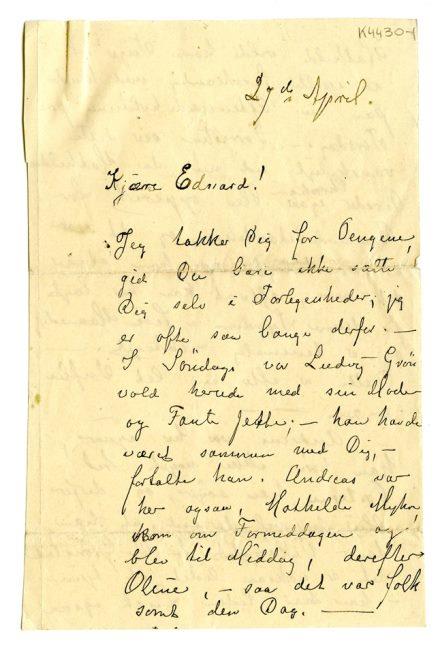 K4430-1
27de April.
Kjære Edvard!
Jeg takker Dig for Pengene,
gid Du bare ikke sætte
Dig selv i Forlegenheder, jeg
er ofte saa bange derfor. —
I Söndags var Ludvig Grön
vold herude med sin Moder
og Tante Jette; — han havde
været sammen med Dig, —
fortalte han. Andreas var
her ogsaa, Mathilde
kom om Formeddagen og
blev til Middag, derefter
Oline, — saa det var folk
somt den Dag. —